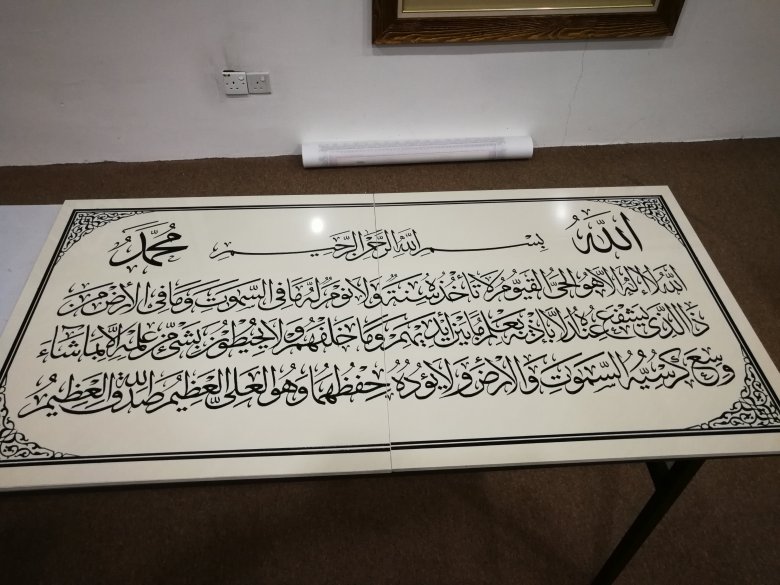 الله
بسم الله الرحمن الرحيم
محمد
الله لا إله إلا هو الحي القيوم لا تأخذه سنة ولا نوم له ما في السموت وما في الأرض من
ذا الذي يشفع عنده إلا بإذنه يعلم ما بين أيديهم وما خلفهم ولا يحيطون بشيء من علمه إلا بما شاء
وسع كرسيه السموت والأرض ولا يؤده حفظهما وهو العلي العظيم صدق الله العظيم